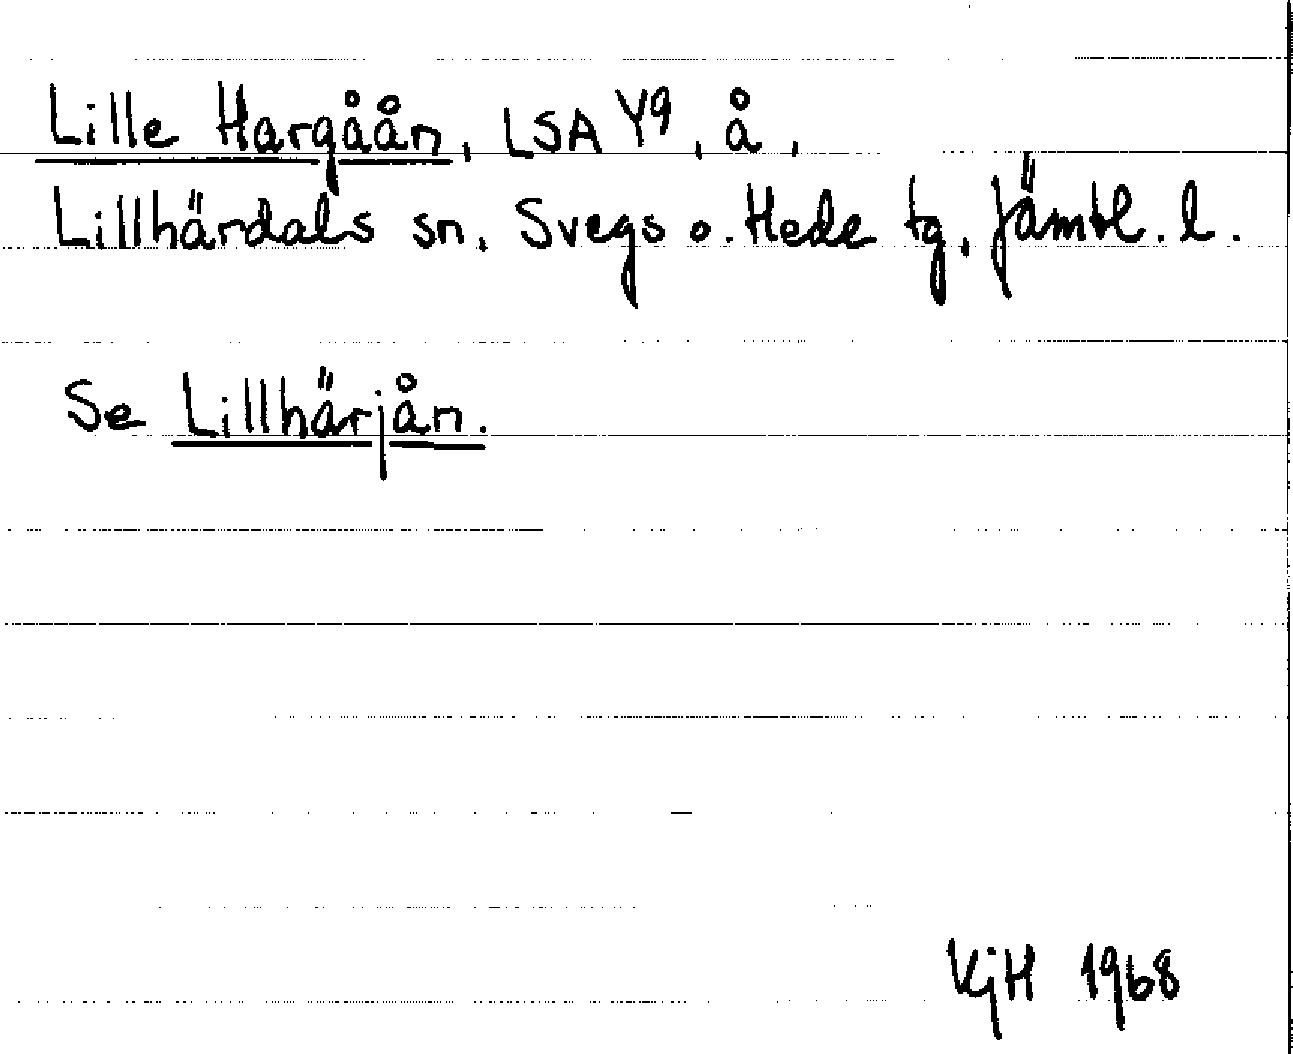 Lille Hargåån, LSA Y9, å,
Lillhärdals sn, Svegs o. Hede tg, Jämtl. l.
Se Lillhärjån.
KjH 1968